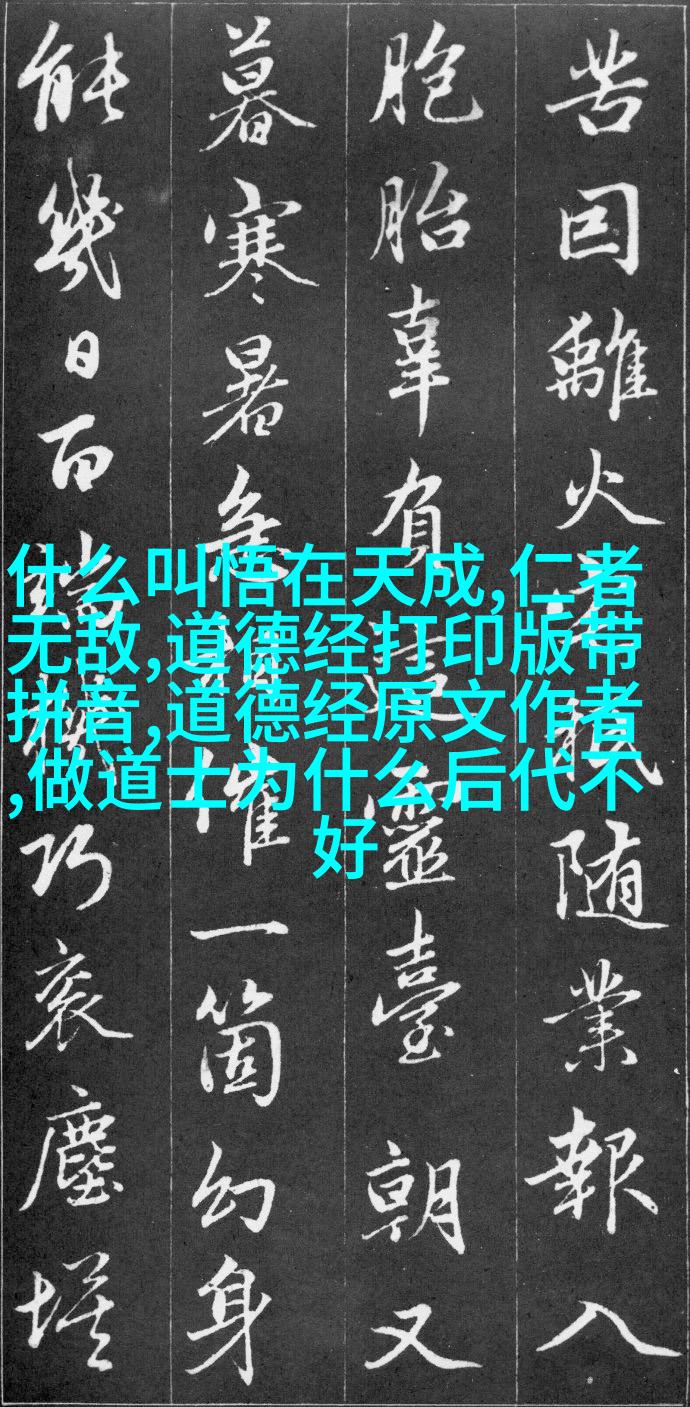 苦囙離火随業報入
胞胎辜負靈臺朝又
暮寒暑急催一箇幻身
能幾日百端機巧衮塵埃
什么叫悟在天成,仁者
无敌,道德经打印版带
拼音,道德经原文作者
,做道士为什么后代不
好